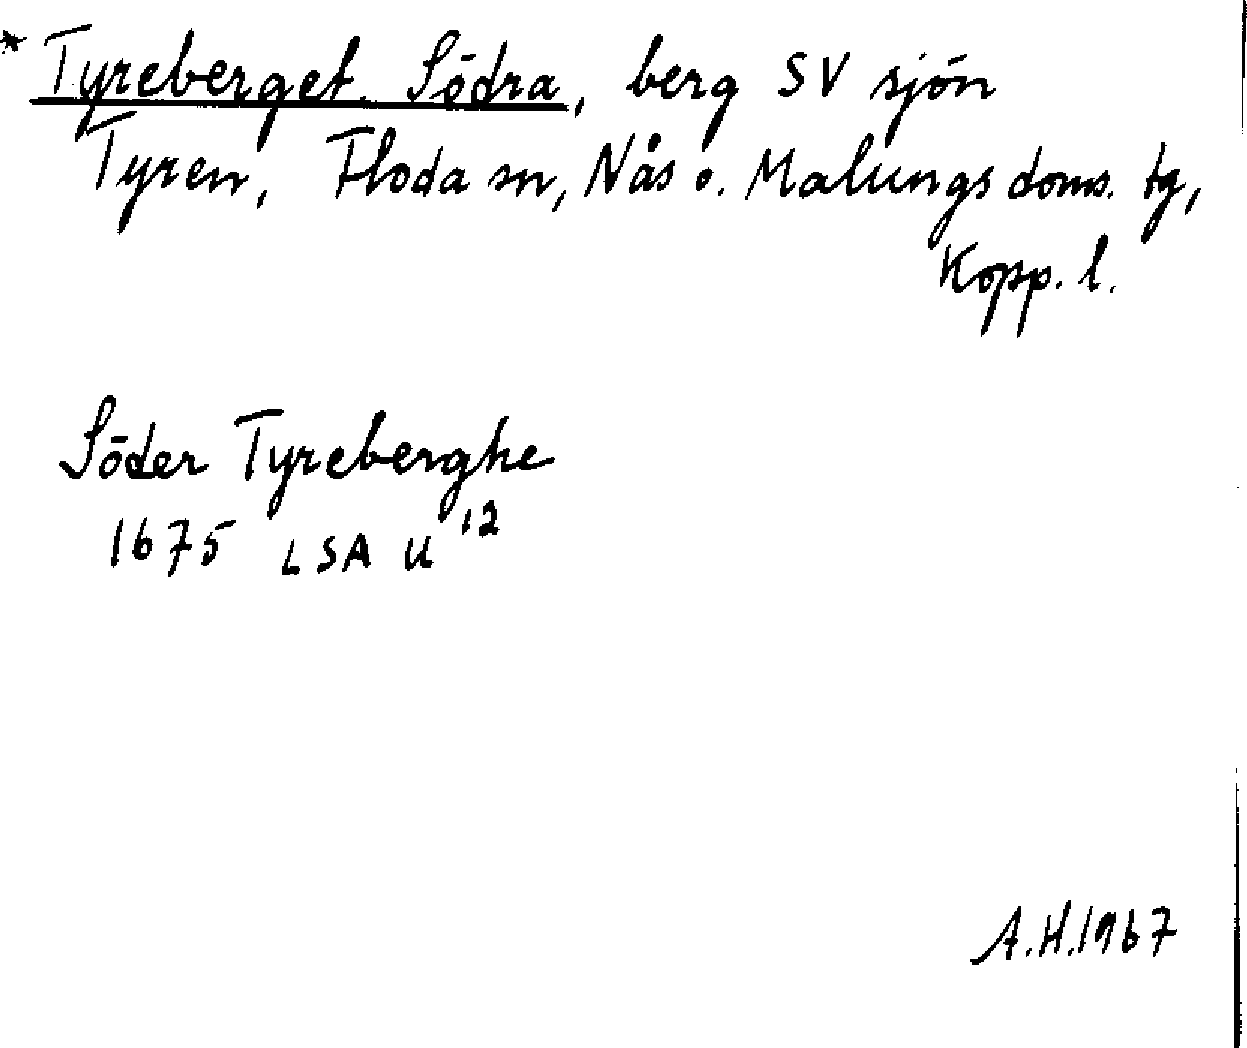 * Tyreberget. Södra, berg SV sjön
Tyren, Floda sn, Nås o. Malungs doms. tg,
Kopp. l.
Söder Tyreberghe
1675 LSA U 12
A.H.1967